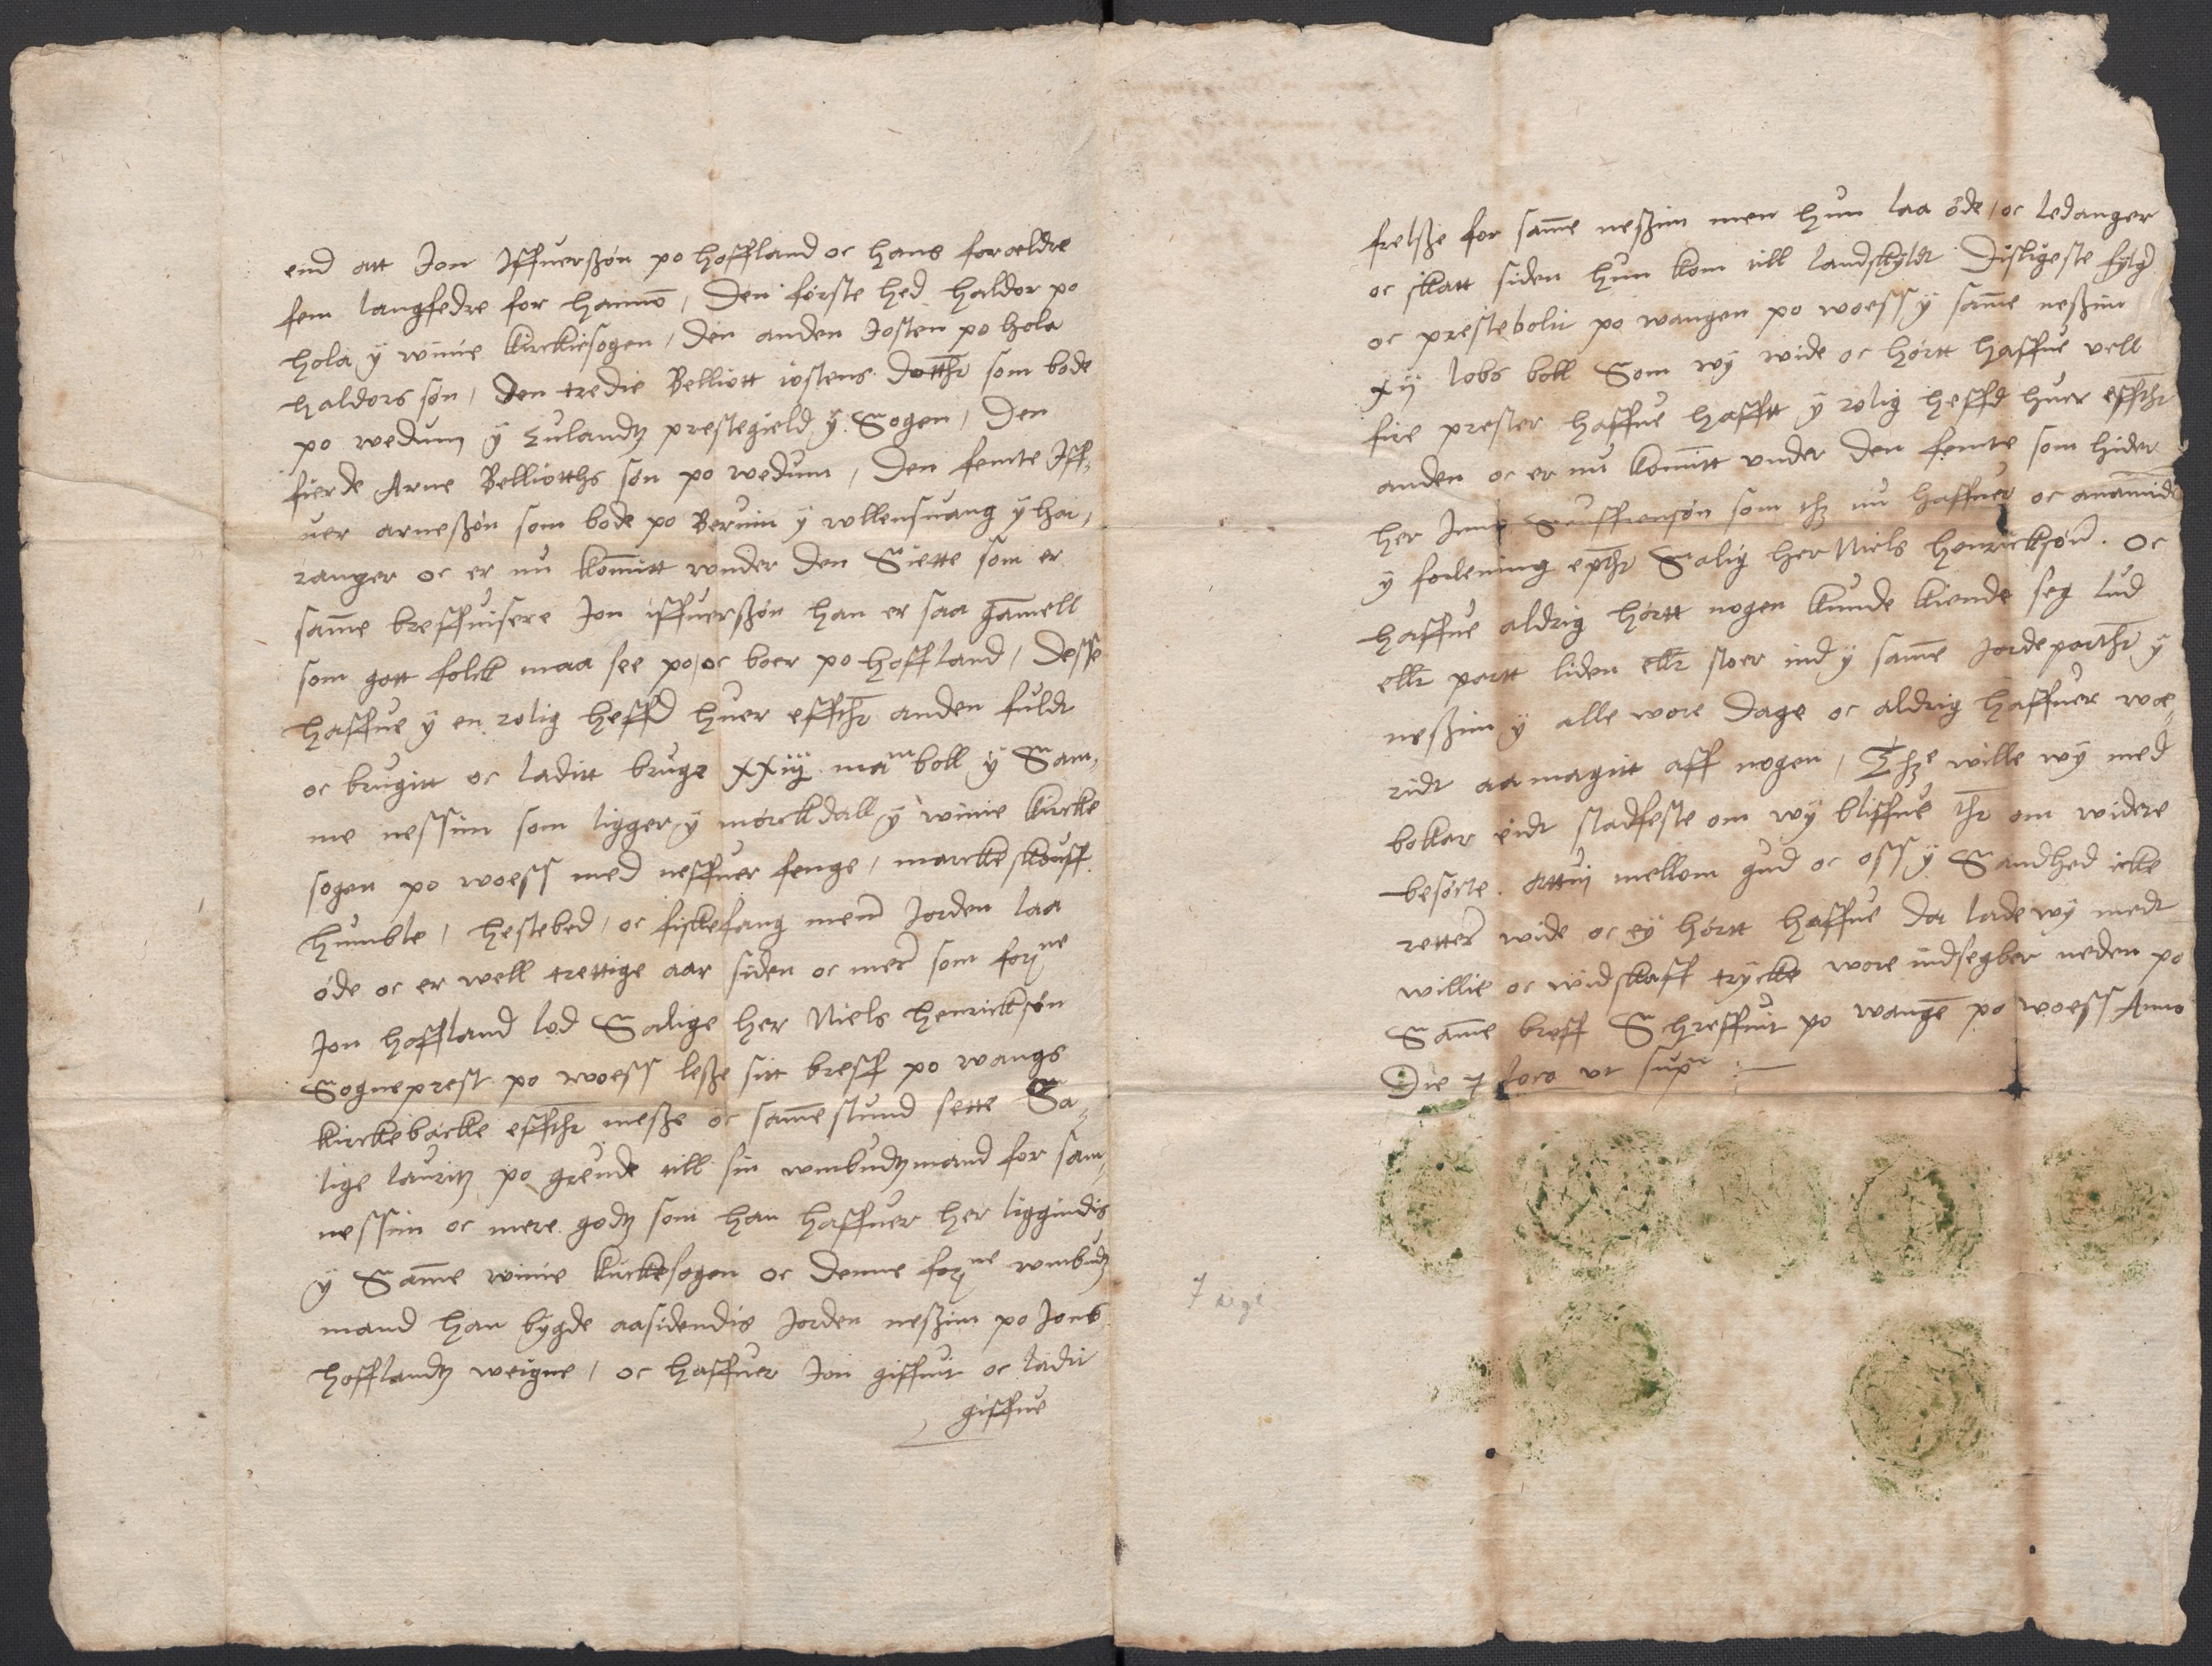 end att Jon Iffuersßøn po hoffland oc hans foroeldre
fem langfedre for hannō, Den første hed haldor po
hola ÿ winie kirckiesogen, den anden Josten po hola
haldors søn, Den tredie Belliott iostens dotthr som bode
po wedum ÿ Lulandz prestegield ÿ Sogen, Den
fierde Arne Belliotths søn po wedum, Den femte Iff,
uer arneßøn som bode po Beruin ÿ wllensuang ÿ har,
ranger oc er nu kommitt wnder den Siette som er
same breffuisere Jon iffuerßøn han er saa gamell
som gott folck maa see po, oc boer po hoffland, Desse
haffue ÿ en rolig heffd huer effthr anden fuldt
oc brugitt oc laditt bruge xxiiij ma boll ÿ Sam,
me nessim som ligger ÿ mørckdall ÿ winie kircke
sogen po woess med neffuer fenge, marcke skouff
humble, hestebed, oc fiskefang menn Jorden laa
øde oc er well trettige aar siden oc mer som forne
Jon hoffland lod Salige her Niels henricksøn
Sogneprest po woess leße sitt breff po wangs
kirckebacke effthr meße oc samestund sette Sa,
lige lauritz po grende till sin wmbudtzmand for sam,
nessim oc mere godz som han haffuer her liggindis
ÿ Same winie kirckesogen oc denne forne wmbudz
mand han bÿgde aasidendis Jorden neßim po Jons
hofflandz weigne, oc haffuer Jon giffuit oc ladit
giffue
frelße for same neßim men hun laa øde, oc ledanger
oc skatt siden hun kom till landskÿldt Disligeste fÿlgd
oc prestebolit po wangen po woess ÿ same neßim
xij lobs boll Som wÿ wide oc hørtt haffue vell
fire prester haffue hafftt ÿ rolig heffd huer effthr
anden oc er nu komitt vnder den femte som hider
her Jens som thz nu haffuer oc anamidt
ÿ forlening epthr Salig her Niels henricksønn. Oc
haffue aldrig hørtt nogen kunde kiende seg lud
ellr partt liden ellr stoer ind ÿ same Jorde parthr ÿ
neßim ÿ alle wore dage oc aldrig haffuer woe,
ridt aamagitt aff nogen, Thze wille wÿ med
bokar eidt stadfeste om wÿ bliffue thr om widere
besøcte. attwi mellom gud oc oss ÿ Sandhed icke
retter wide oc eÿ hørtt haffue da lade wÿ medt
willie oc widskaff trÿcke wore indsegber neden po
Same breff Schreffuit po wange po woess Anno
Die 7 loco vt supra :—
7 segl